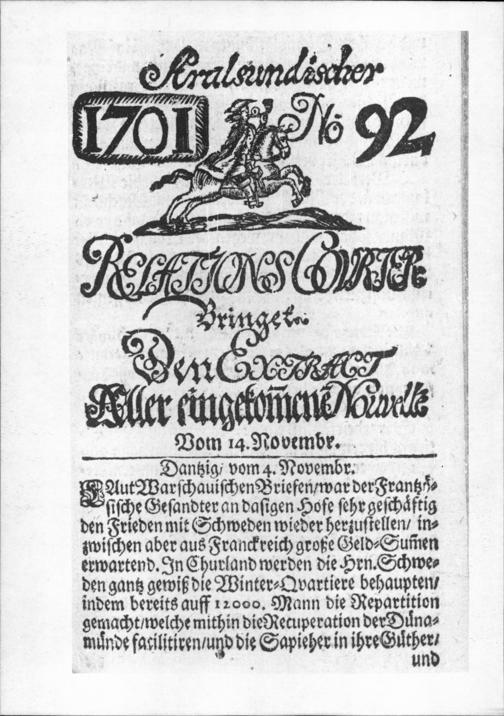 Stralsundischer
1701
No 92
RELATIONS COURIER
Bringet
Den EXTRACT
Aller eingekom̃ene Nouvelle
Vom 14. Novembr.
Dantzig/ vom 4. Novembr.
LAut Warschauischen Briefen/war der Frantzö-
sische Gesandter an dasigen Hofe sehr geschäftig
den Frieden mit Schweden wieder herzustellen/ in-
zwischen aber aus Franckreich große Geld-Sum̃en
erwartend. In Churland werden die Hrn. Schwe-
den gantz gewiß die Winter-Qvartiere behaupten/
indem bereits auff 12000. Mann die Repartition
gemacht/welche mithin die Recuperation der Düna-
münde facilitiren/und die Sapieher in ihre Güther/
und